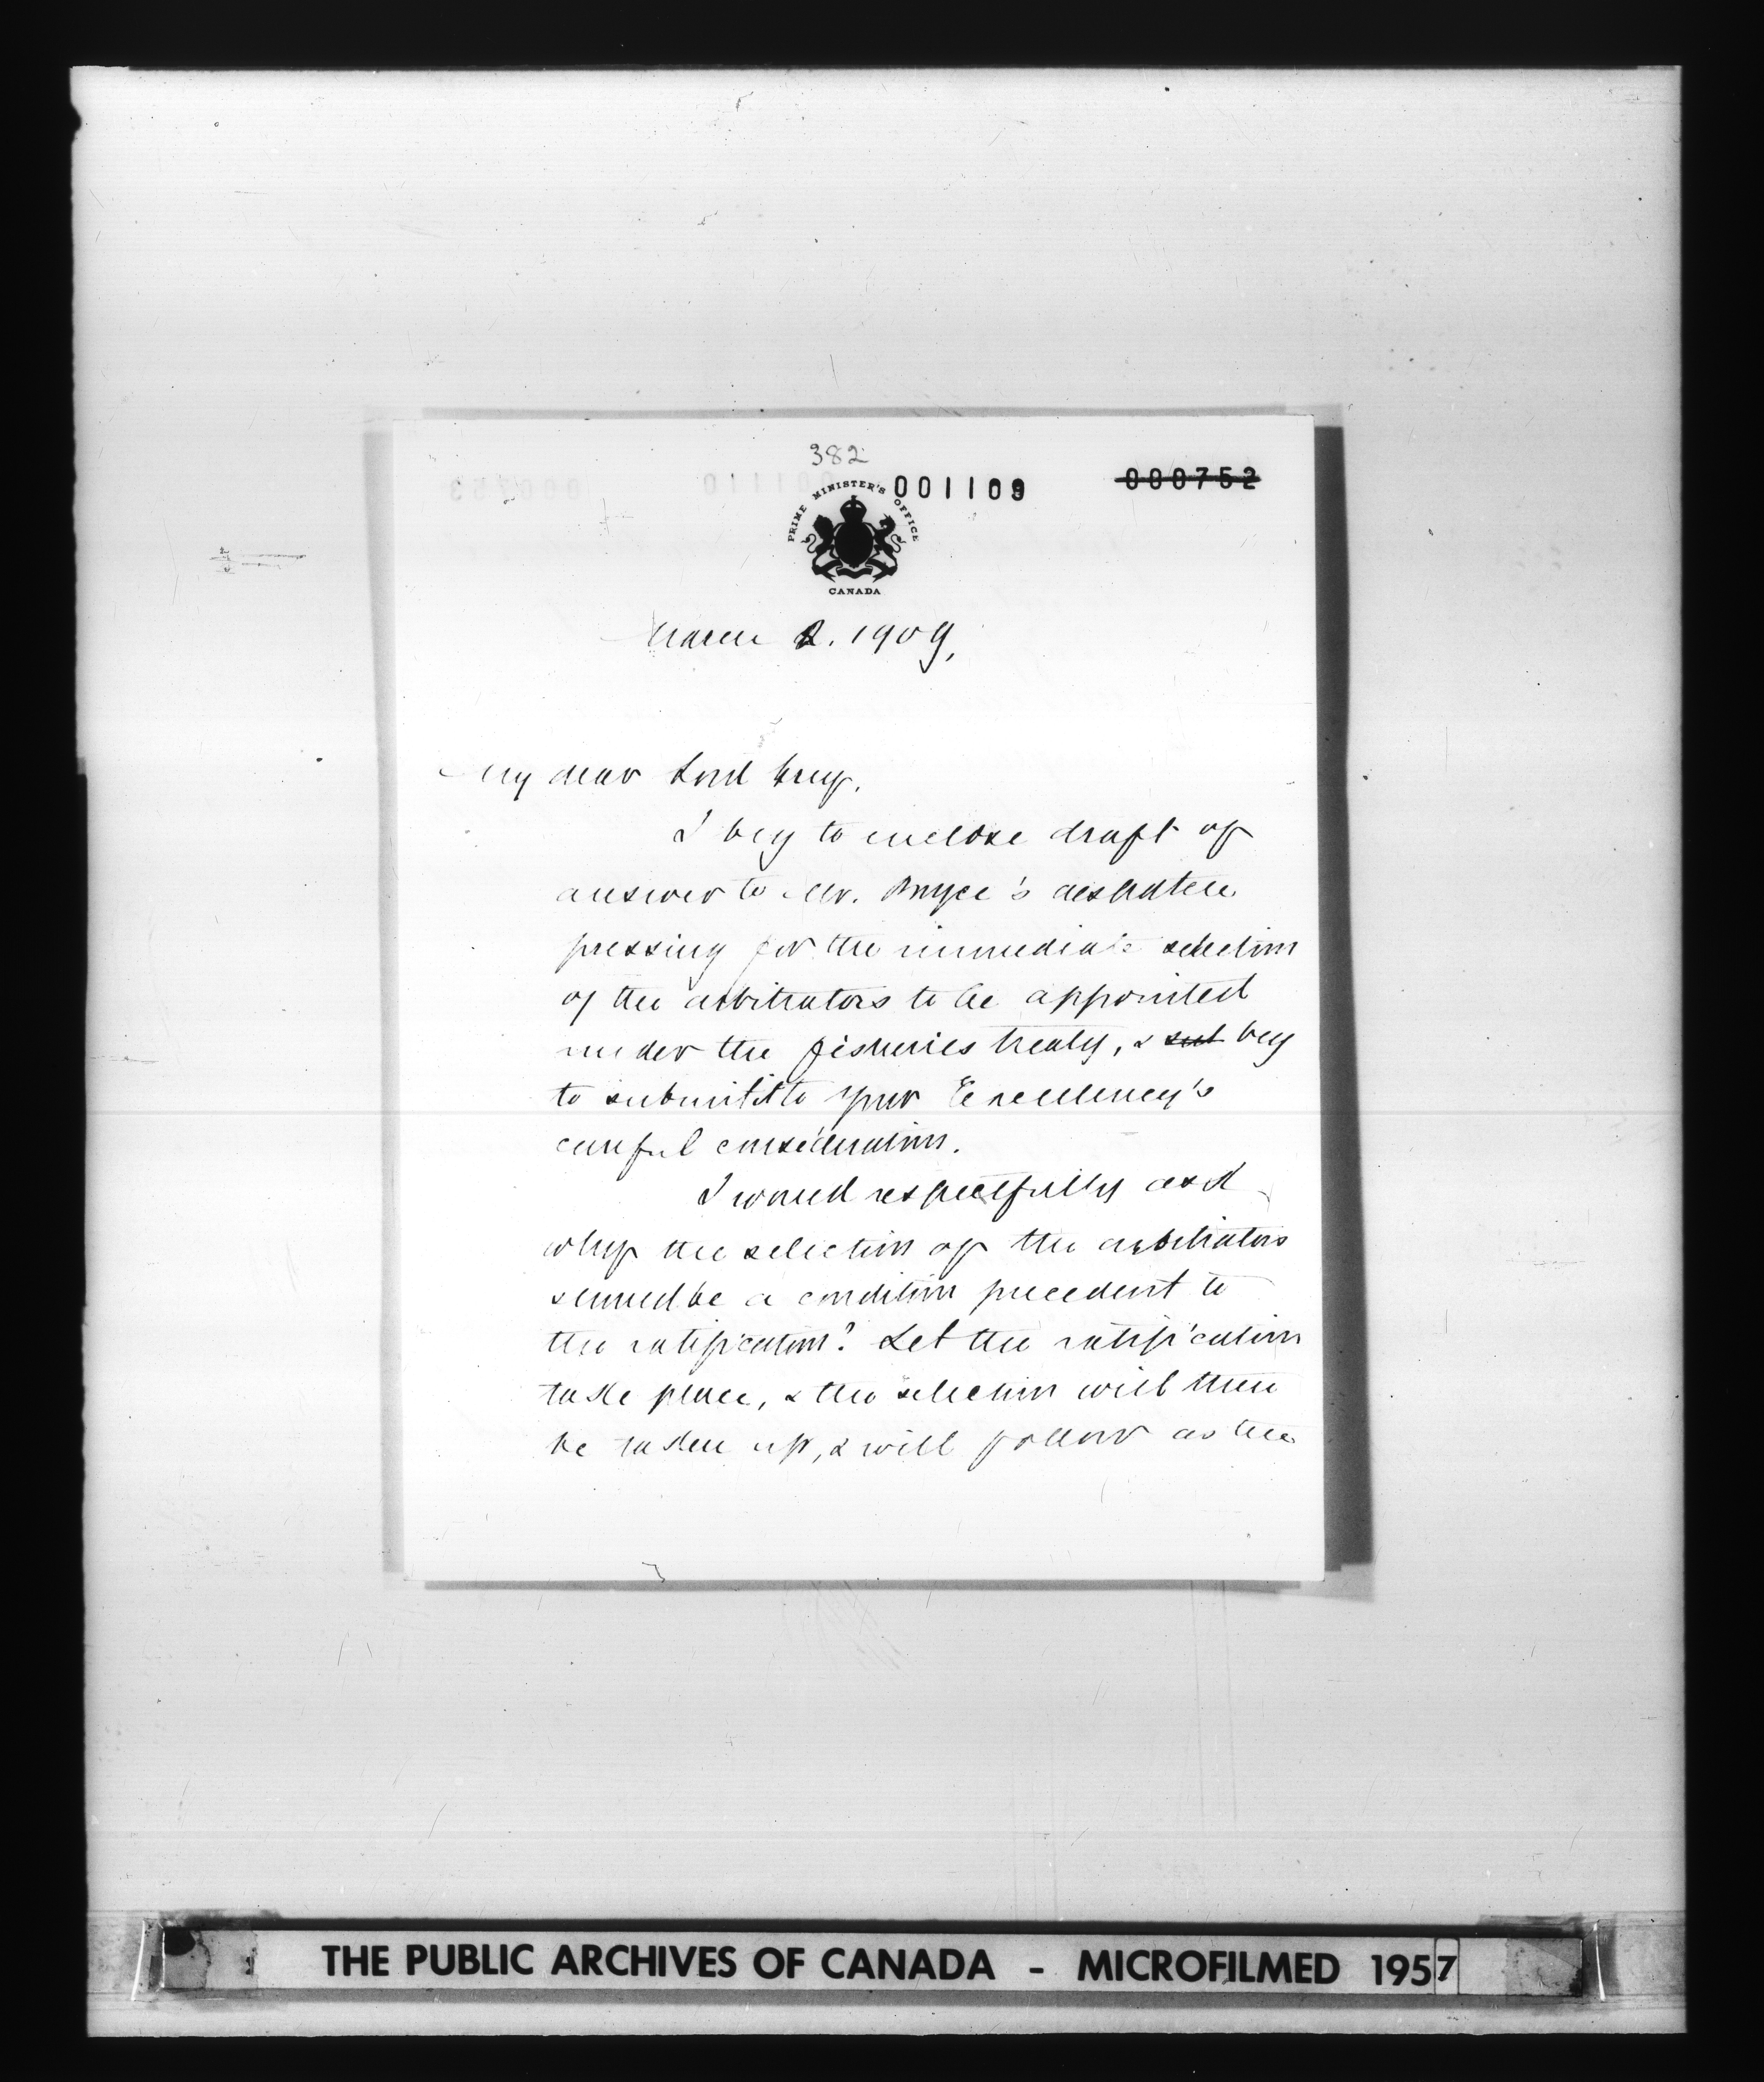 382
001109
000752
PRIME MINISTER'S OFFICE
CANADA
March 2. 1909,
My dear Lord Grey,
I beg to enclose draft of
answer to Mr. Bryce's despatch
pressing for the immediate selection
of the arbitrators to be appointed
under the fisheries treaty, & sub beg
to submit it to Your Excellency's
careful consideration.
I would respectfully ask
why the selection of the arbitrators
should be a condition precedent to
the ratification? Let the ratification
take place, & the selection will then
be taken up, & will follow as the
THE PUBLIC ARCHIVES OF CANADA - MICROFILMED 1957